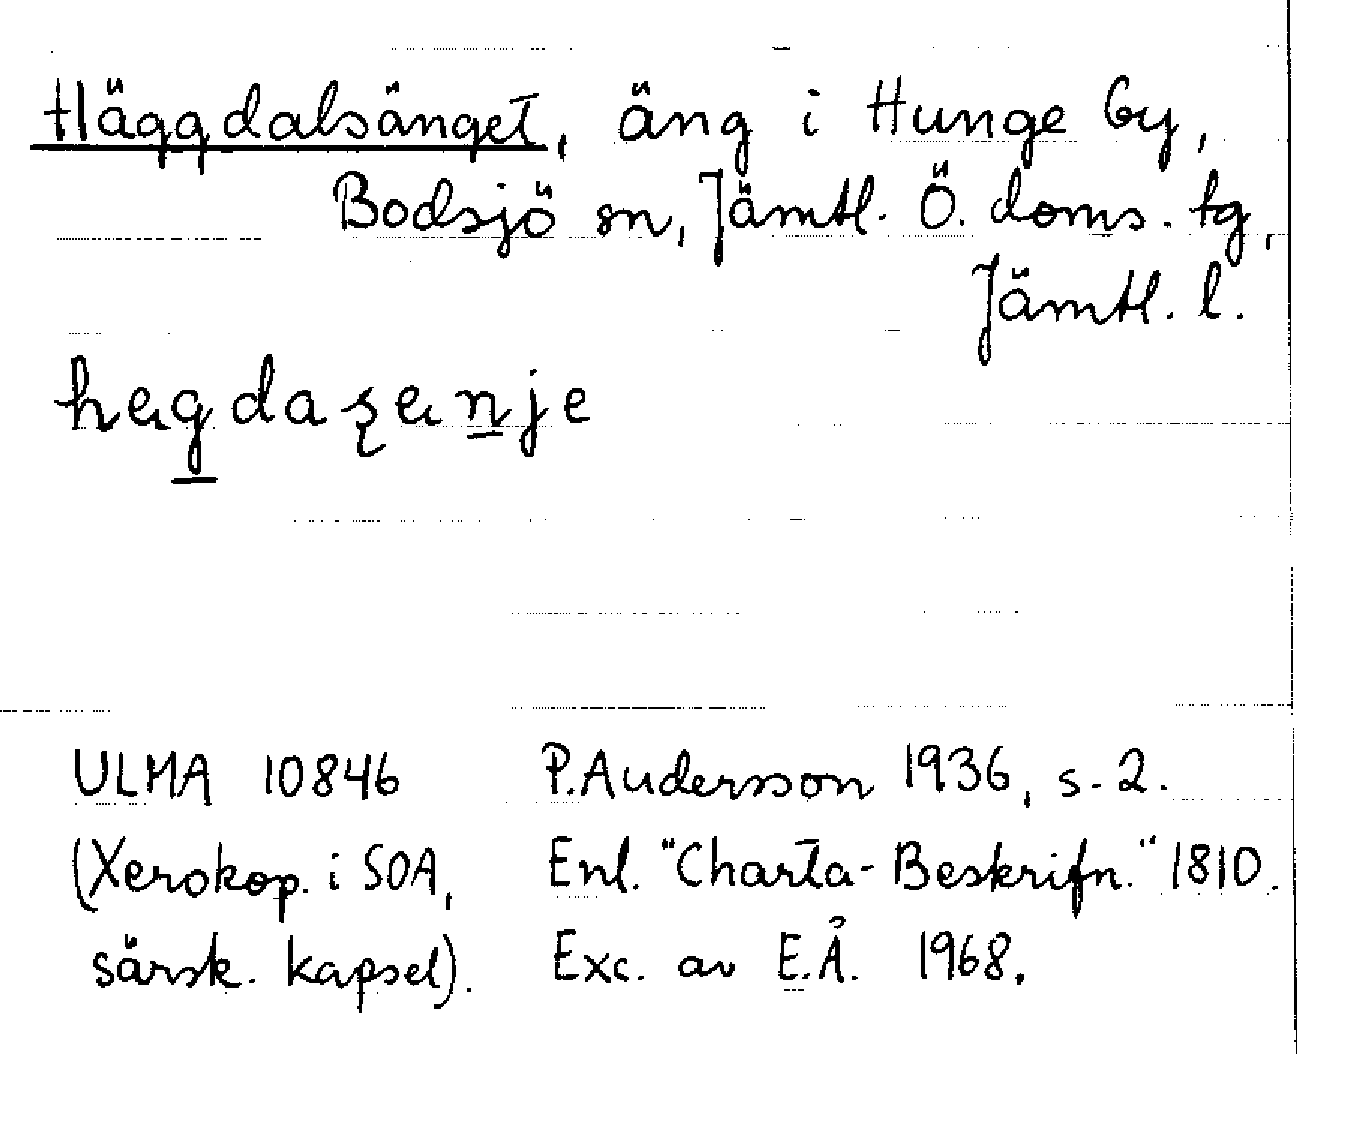 Häggdalsänget, äng i Hunge by,
Bodsjö sn, Jämtl. Ö. doms. tg,
Jämtl. l.
ULMA 10846 P. Andersson 1936, s. 2.
(Xerokop. i SOA, Enl. "Charta-Beskrifn." 1810.
särsk. kapsel). Exc. av E.Å. 1968.